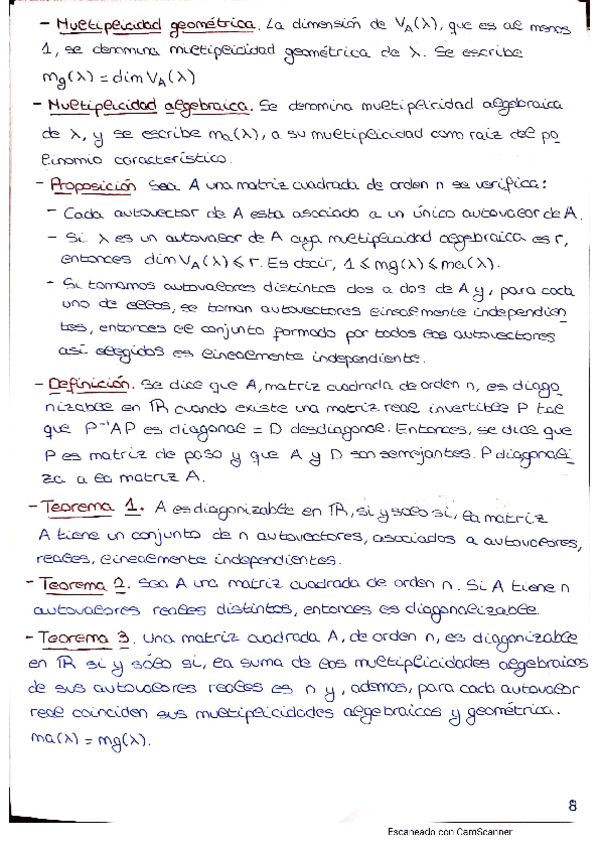 - Multiplicidad geométrica. La dimensión de V_A(λ), que es al menos
1, se denomina multiplicidad geométrica de λ. Se escribe
mg(λ) = dim V_A(λ)
- Multiplicidad algebraica. Se denomina multiplicidad algebraica
de λ, y se escribe ma(λ), a su multiplicidad como raíz del po
linomio característico.
- Proposición Sea A una matriz cuadrada de orden n se verifica:
- Cada autovector de A esta asociado a un único autovalor de A.
- Si λ es un autovalor de A cuya multiplicidad algebraica es r,
entonces dim V_A(λ) ≤ r. Es decir, 1 ≤ mg(λ) ≤ ma(λ).
- Si tomamos autovalores distintos dos a dos de A y, para cada
uno de ellos, se toman autovectores linealmente independien
tes, entonces el conjunto formado por todos los autovectores
así elegidos es linealmente independiente.
- Definición. Se dice que A, matriz cuadrada de orden n, es diago
nizable en ℝ cuando existe una matriz real invertible P tal
que P⁻¹AP es diagonal = D desdiagonal. Entonces, se dice que
P es matriz de paso y que A y D son semejantes. P diagonali
za a la matriz A.
- Teorema 1. A es diagonizable en ℝ, si y solo si, la matriz
A tiene un conjunto de n autovectores, asociados a autovalores,
reales, linealmente independientes.
- Teorema 2. Sea A una matriz cuadrada de orden n. Si A tiene n
autovalores reales distintos, entonces es diagonalizable.
- Teorema 3. Una matriz cuadrada A, de orden n, es diagonizable
en ℝ si y sólo si, la suma de las multiplicidades algebraicas
de sus autovalores reales es n y, ademas, para cada autovalor
real coinciden sus multiplicidades algebraicas y geométrica.
ma(λ) = mg(λ).
8
Escaneado con CamScanner